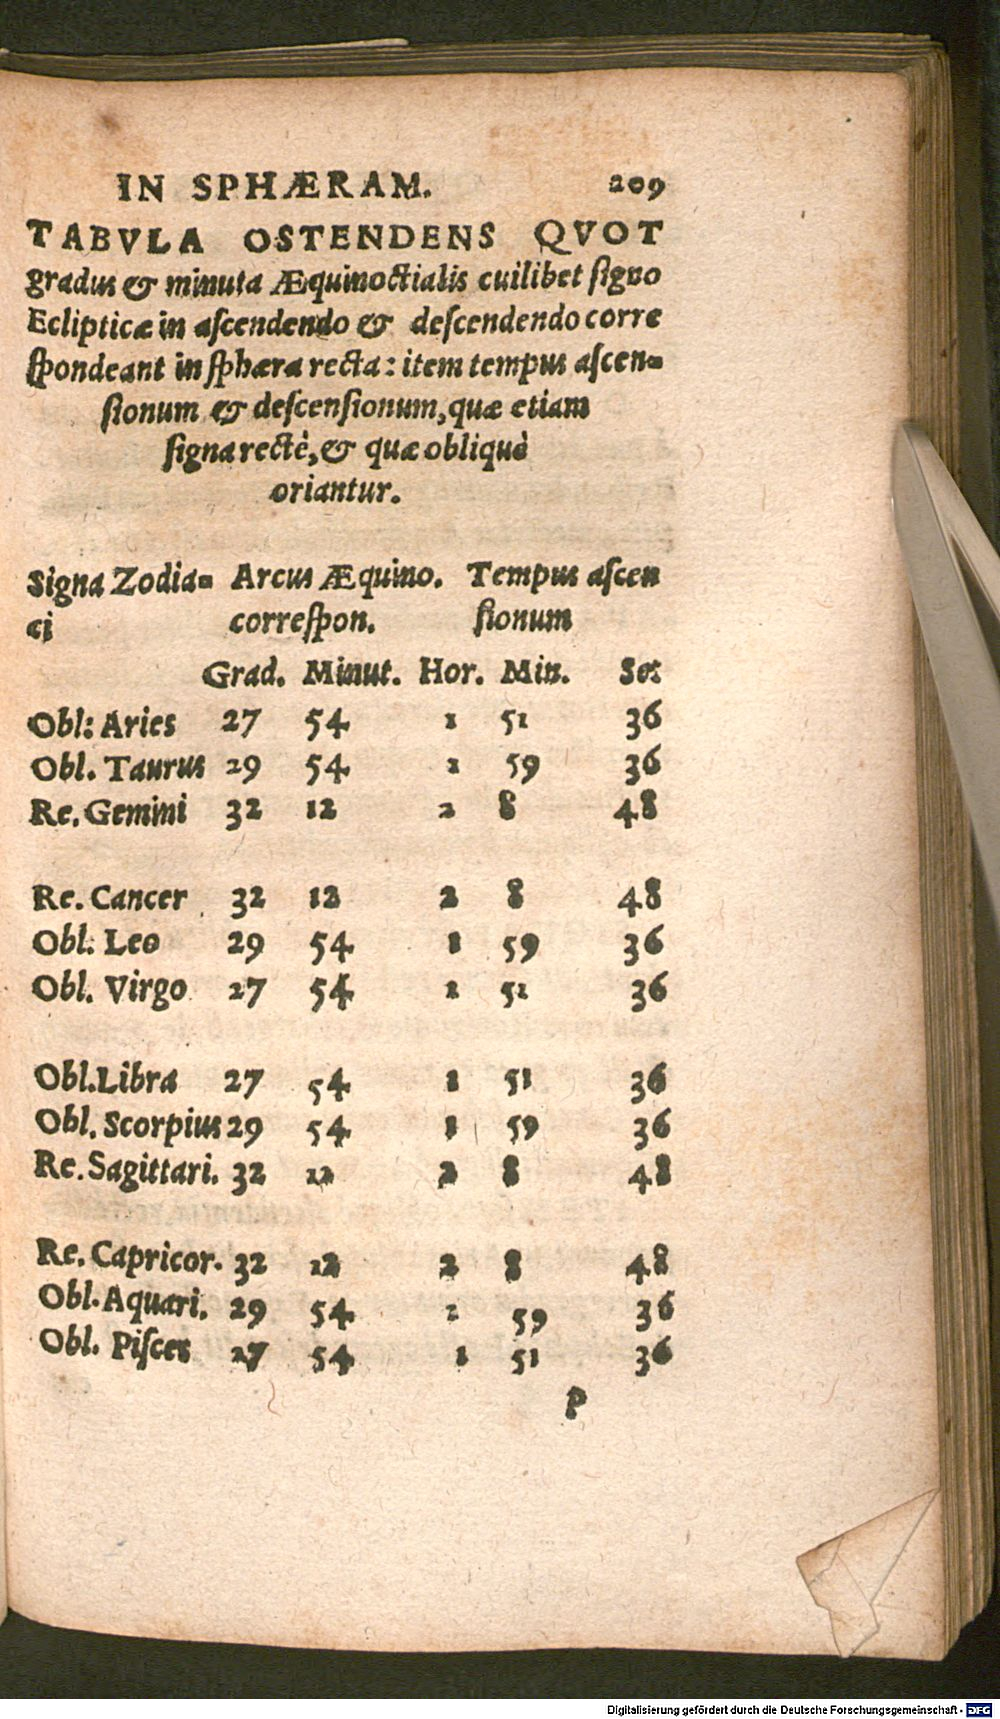 IN SPHÆRAM. 209
TABVLA OSTENDENS QVOT
gradus & minuta Æquinoctialis cuilibet ſigno
Eclipticæ in aſcendendo & deſcendendo corre
ſpondeant in ſphæra recta: item tempus aſcen-
ſionum & deſcenſionum, quæ etiam
ſigna rectè, & quæ obliquè
oriantur.
Signa Zodia- Arcus Æquino. Tempus aſcen
ci correſpon. ſionum
Grad. Minut. Hor. Min. Sec
Obl: Aries 27 54 1 51 36
Obl. Taurus 29 54 1 59 36
Re. Gemini 32 12 2 8 48
Re. Cancer 32 12 2 8 48
Obl. Leo 29 54 1 59 36
Obl. Virgo 27 54 1 51 36
Obl. Libra 27 54 1 51 36
Obl. Scorpius 29 54 1 59 36
Re. Sagittari. 32 12 2 8 48
Re. Capricor. 32 12 2 8 48
Obl. Aquari. 29 54 1 59 36
Obl. Piſces 27 54 1 51 36
P
Digitalisierung gefördert durch die Deutsche Forschungsgemeinschaft - DFG